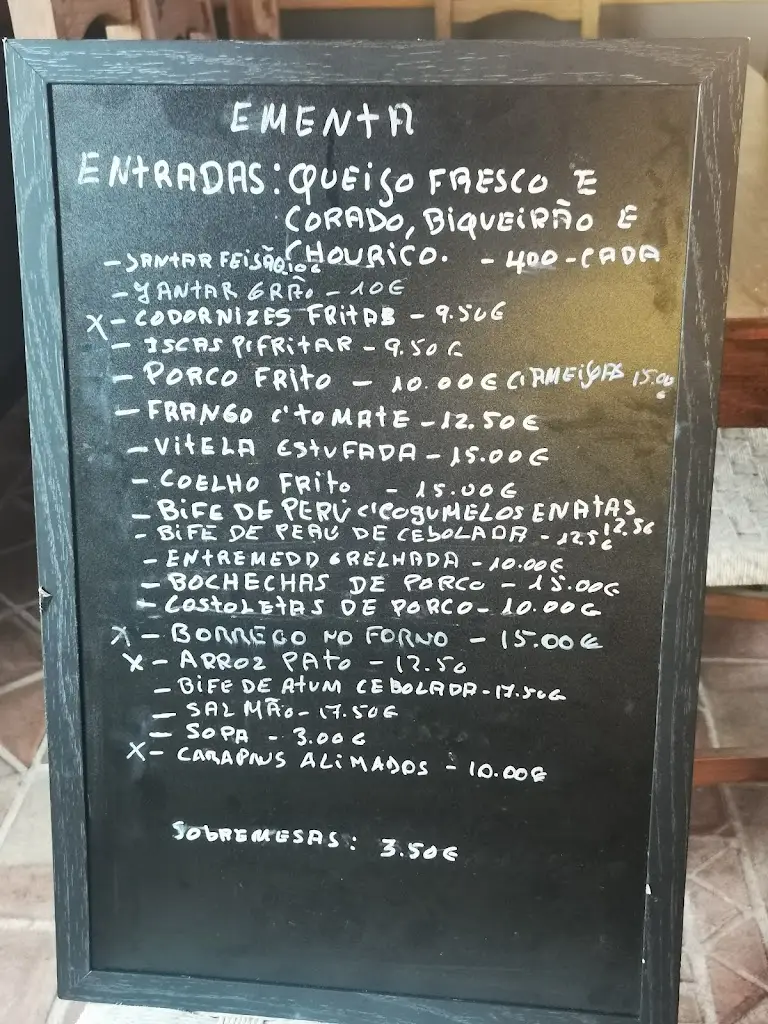 EMENTA
ENTRADAS: QUEIJO FRESCO E
CORADO, BIQUEIRÃO E
CHOURICO. - 400 - CADA
- JANTAR FEISÃO 10€
- JANTAR GRÃO - 10€
X - CODORNIZES FRITAS - 9.50€
- ISCAS P/FRITAR - 9.50€
- PORCO FRITO - 10.00€ C/AMEIJOAS 15.00€
- FRANGO C/TOMATE - 12.50€
- VITELA ESTUFADA - 15.00€
- COELHO FRITO - 15.00€
- BIFE DE PERÚ C/COGUMELOS E NATAS 12.5€
- BIFE DE PERÚ DE CEBOLADA - 12.5€
- ENTREMEDO GRELHADA - 10.00€
- BOCHECHAS DE PORCO - 15.00€
- COSTOLETAS DE PORCO - 10.00€
X - BORREGO NO FORNO - 15.00€
X - ARROZ PATO - 12.50
- BIFE DE ATUM CEBOLADA - 17.50€
- SALMÃO - 17.50€
- SOPA - 3.00€
X - CARAPAUS ALIMADOS - 10.00€
SOBREMESAS: 3.50€